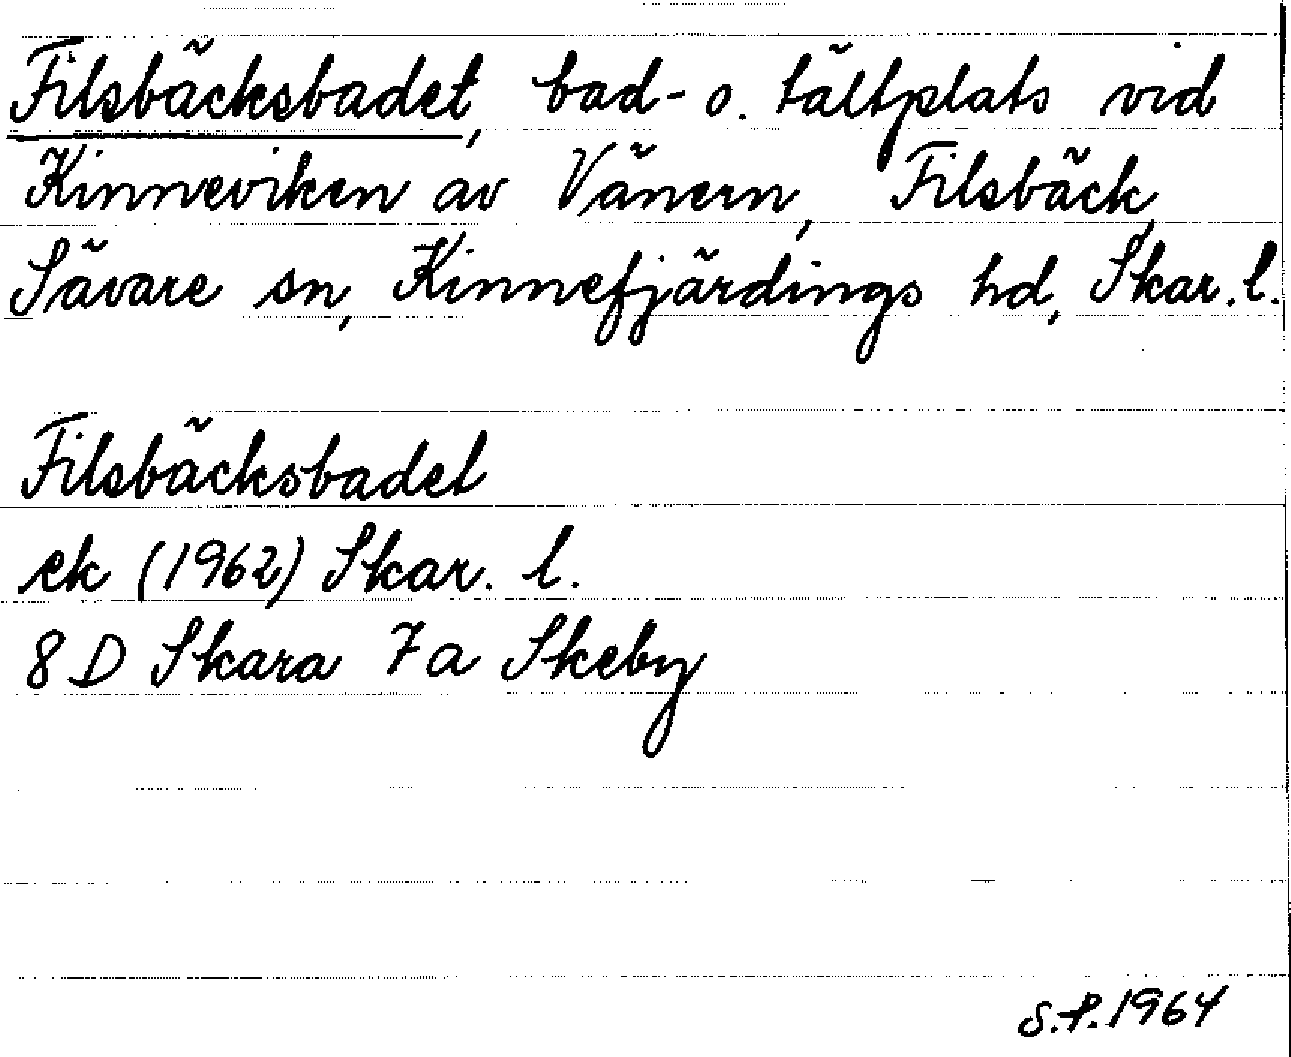 Filsbäcksbadet, bad- o. tältplats vid
Kinneviken av Vänern, Filsbäck,
Sävare sn, Kinnefjärdings hd, Skar. l.
Filsbäcksbadet
ek (1962) Skar. l.
8 D Skara 7a Skeby
S.P. 1964